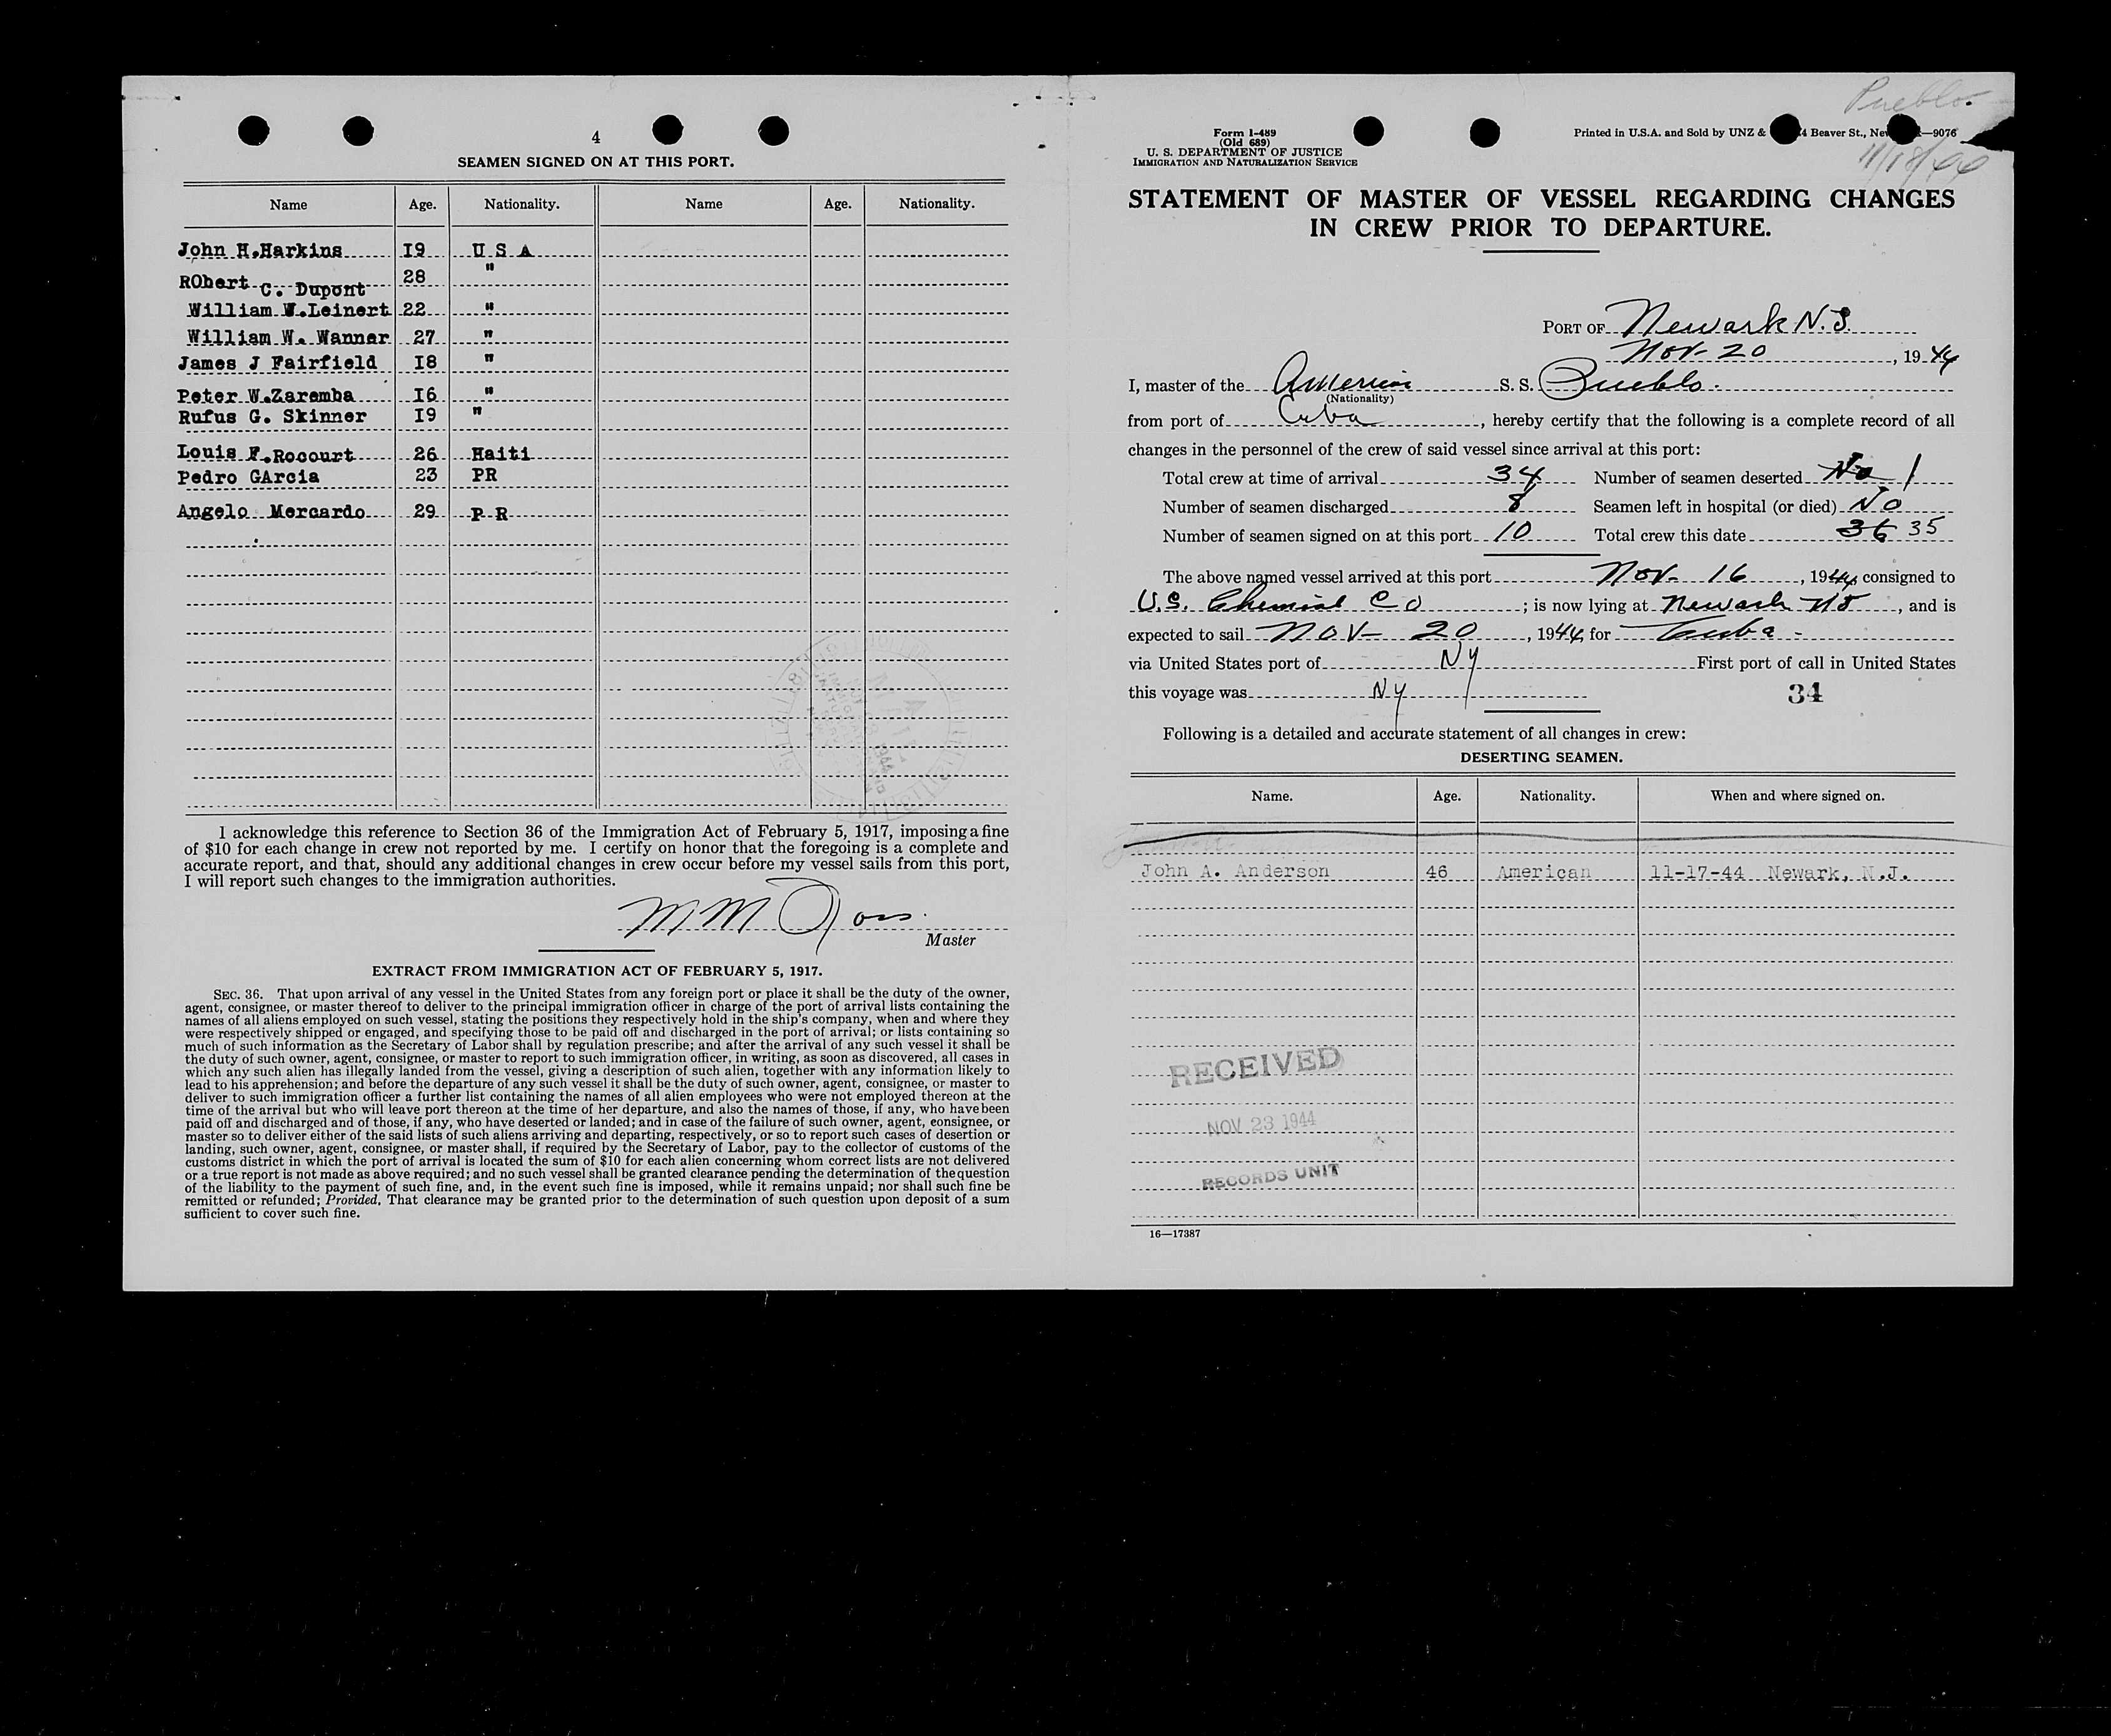 4
SEAMEN SIGNED ON AT THIS PORT.
Name Age. Nationality. Name Age. Nationality.
John H.Harkins 19 U S A
RObert C. Dupont 28 "
William W.Leinert 22 "
William W. Wanner 27 "
James J Fairfield 18 "
Peter W.Zaremba 16 "
Rufus G. Skinner 19 "
Louis F.Rocourt 26 Haiti
Pedro GArcia 23 PR
Angelo Mercardo 29 P R
I acknowledge this reference to Section 36 of the Immigration Act of February 5, 1917, imposing a fine
of $10 for each change in crew not reported by me. I certify on honor that the foregoing is a complete and
accurate report, and that, should any additional changes in crew occur before my vessel sails from this port,
I will report such changes to the immigration authorities.
M M Ross.
Master
EXTRACT FROM IMMIGRATION ACT OF FEBRUARY 5, 1917.
SEC. 36. That upon arrival of any vessel in the United States from any foreign port or place it shall be the duty of the owner,
agent, consignee, or master thereof to deliver to the principal immigration officer in charge of the port of arrival lists containing the
names of all aliens employed on such vessel, stating the positions they respectively hold in the ship's company, when and where they
were respectively shipped or engaged, and specifying those to be paid off and discharged in the port of arrival; or lists containing so
much of such information as the Secretary of Labor shall by regulation prescribe; and after the arrival of any such vessel it shall be
the duty of such owner, agent, consignee, or master to report to such immigration officer, in writing, as soon as discovered, all cases in
which any such alien has illegally landed from the vessel, giving a description of such alien, together with any information likely to
lead to his apprehension; and before the departure of any such vessel it shall be the duty of such owner, agent, consignee, or master to
deliver to such immigration officer a further list containing the names of all alien employees who were not employed thereon at the
time of the arrival but who will leave port thereon at the time of her departure, and also the names of those, if any, who have been
paid off and discharged and of those, if any, who have deserted or landed; and in case of the failure of such owner, agent, consignee, or
master so to deliver either of the said lists of such aliens arriving and departing, respectively, or so to report such cases of desertion or
landing, such owner, agent, consignee, or master shall, if required by the Secretary of Labor, pay to the collector of customs of the
customs district in which the port of arrival is located the sum of $10 for each alien concerning whom correct lists are not delivered
or a true report is not made as above required; and no such vessel shall be granted clearance pending the determination of the question
of the liability to the payment of such fine, and, in the event such fine is imposed, while it remains unpaid; nor shall such fine be
remitted or refunded; Provided, That clearance may be granted prior to the determination of such question upon deposit of a sum
sufficient to cover such fine.
Pueblo.
11/18/44
Form I-489
(Old 689)
U. S. DEPARTMENT OF JUSTICE
IMMIGRATION AND NATURALIZATION SERVICE
Printed in U.S.A. and Sold by UNZ & Beaver St., —9076
STATEMENT OF MASTER OF VESSEL REGARDING CHANGES
IN CREW PRIOR TO DEPARTURE.
PORT OF Newark N.J.
Nov- 20, 1944
I, master of the American S. S. Pueblo.
(Nationality)
from port of Cuba, hereby certify that the following is a complete record of all
changes in the personnel of the crew of said vessel since arrival at this port:
Total crew at time of arrival 34 Number of seamen deserted No 1
Number of seamen discharged 8 Seamen left in hospital (or died) No
Number of seamen signed on at this port 10 Total crew this date 36 35
The above named vessel arrived at this port Nov- 16, 1944, consigned to
U.S. Chemical Co; is now lying at Newark NJ, and is
expected to sail Nov- 20, 1944, for Cuba -
via United States port of Ny First port of call in United States
this voyage was Ny 34
Following is a detailed and accurate statement of all changes in crew:
DESERTING SEAMEN.
Name. Age. Nationality. When and where signed on.
John A. Anderson 46 American 11-17-44 Newark, N.J.
RECEIVED
NOV 23 1944
RECORDS UNIT
16—17387